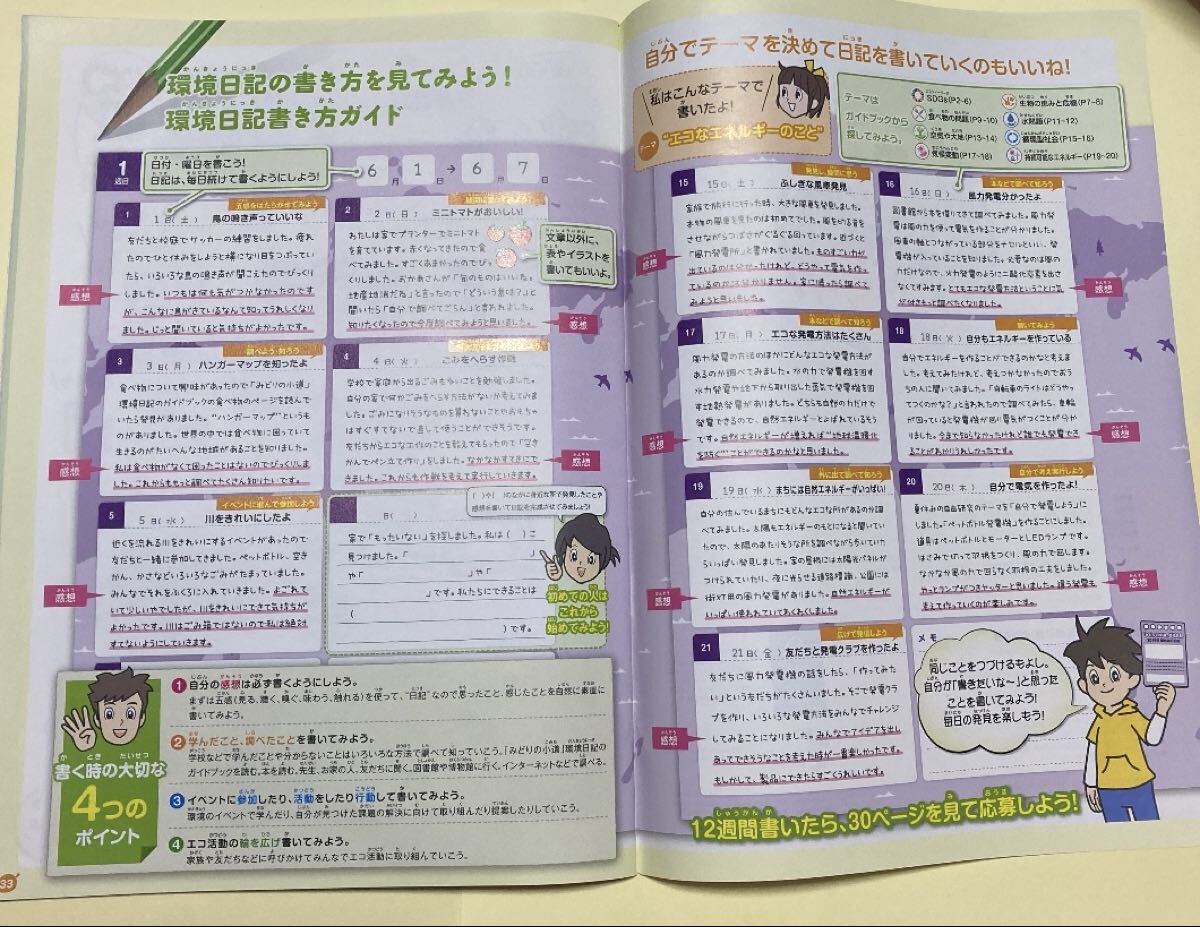 環境日記の書き方を見てみよう!
環境日記書き方ガイド
1週目
日付・曜日を書こう!
日記は、毎日続けて書くようにしよう!
6月1日→6月7日
五感をはたらかせてみよう
1 1日(土) 鳥の鳴き声っていいな
友だちと校庭でサッカーの練習をしました。疲れ
たのでひと休みをしようと横になり目をつぶってい
たら、いろいろな鳥の鳴き声が聞こえたのでびっくり
しました。いつもは何も気がつかなかったのです
が、こんなに鳥がきているなんて知ってうれしくなり
ました。じっと聞いていると気持ちがよかったです。
感想
2 2日(日) ミニトマトがおいしい!
わたしは家でプランターでミニトマト
を育てています。赤くなってきたので食
べてみました。すごくあまかったのでびっ
くりしました。おかあさんが「旬のものはいいね。
地産地消だね」と言ったので「どういう意味?」と
聞いたら「自分で調べてごらん」と言われました。
知りたくなったので今度調べてみようと思いました。
感想
文章以外に、
表やイラストを
書いてもいいよ。
調べよう・知ろう
3 3日(月) ハンガーマップを知ったよ
食べ物について興味があったので「みどりの小道」
環境日記のガイドブックの食べ物のページを読んで
いたら発見がありました。“ハンガーマップ”というも
のがありました。世界の中では食べ物に困っていて
生きるのがたいへんな地域があることを知りました。
私は食べ物がなくて困ったことはないのでびっくりしま
した。これからももっと調べてたくさん知りたいです。
感想
4 4日(火) ごみをへらす作戦
学校で家庭から出るごみも多いことを勉強しました。
自分の家で何かごみをへらす方法がないか考えてみま
した。ごみになりそうなものを買わないことやおもちゃ
はすぐすてないで直して使うことができそうです。
友だちからエコなエコ作のことを教えてもらったので「空き
かんでペン立て作り」をしました。なかなかすてきにで
きました。これからも作戦を考えて実行していきます。
感想
イベントに進んで参加しよう
5 5日(水) 川をきれいにしたよ
近くを流れる川をきれいにするイベントがあったので
友だちと一緒に参加してきました。ペットボトル、空き
かん、かさなどいろいろなごみがたまっていました。
みんなでそれをふくろに入れていきました。よごれて
いて少しいやでしたが、川をきれいにできて気持ちが
よかったです。川はごみ箱ではないので私は絶対
すてないようにしていきます。
感想
( )や「 」のなかに身近な所で発見したことや
感想を書いて日記を完成させてみましょう!
日( )
家で「もったいない」を探しました。私は( )こ
見つけました。「 」
や「 」や「
」です。私たちにできることは
(
)です。
初めての人は
これから
始めてみよう!
書く時の大切な
4つの
ポイント
1 自分の感想は必ず書くようにしよう。
まずは五感(見る、聴く、嗅ぐ、味わう、触れる)を使って、“日記”なので思ったこと、感じたことを自然に素直に
書いてみよう。
2 学んだこと、調べたことを書いてみよう。
学校などで学んだことや分からないことはいろいろな方法で調べて知っていこう。「みどりの小道」環境日記の
ガイドブックを読む、本を読む、先生、お家の人、友だちに聞く、図書館や博物館に行く、インターネットなどで調べる。
3 イベントに参加したり、活動をしたり行動して書いてみよう。
環境のイベントで学んだり、自分が見つけた課題の解決に向けて取り組んだり提案したりしていこう。
4 エコ活動の輪を広げ書いてみよう。
家族や友だちなどに呼びかけてみんなでエコ活動に取り組んでいこう。
33
自分でテーマを決めて日記を書いていくのもいいね!
私はこんなテーマで
書いたよ!
テーマ “エコなエネルギーのこと”
テーマは
ガイドブックから
探してみよう。
SDGs(P2-6)
食べ物の問題(P9-10)
空気や大地(P13-14)
気候変動(P17-18)
生物の恵みと危機(P7-8)
水問題(P11-12)
循環型社会(P15-16)
持続可能なエネルギー(P19-20)
発見し、疑問に思う
15 15日(土) ふしぎな風車発見
家族で旅行に行った時、大きな風車を発見しました。
本物の風車を見たのは初めてでした。風をきる音を
させながらつばさがぐるぐる回っています。近づくと
「風力発電所」と書かれていました。ものすごい力が
出ているのは分かったけれど、どうやって電気を作っ
ているのかは分かりません。家に帰ったら調べて
みようと思いました。
感想
本などで調べて知ろう
16 16日(日) 風力発電分かったよ
図書館から本を借りてきて調べてみました。風力発
電は風の力を使って電気を作ることが分かりました。
風車の軸とつながっている部分をナセルといい、発
電機が入っていることを知りました。必要なのは風の
力だけなので、火力発電のように二酸化炭素を出さ
なくてすみます。とてもエコな発電方法ということに気
が付きもっと調べたくなりました。
感想
本などで調べて知ろう
17 17日(月) エコな発電方法はたくさん
風力発電の方法のほかにどんなエコな発電方法が
あるのか調べてみました。水の力で発電機を回す
水力発電や地下から取り出した蒸気で発電機を回
す地熱発電がありました。どちらも自然の力だけで
発電できるので、自然エネルギーとよばれているそう
です。自然エネルギーが増えれば“地球温暖化
を防ぐ”ことができるのかなと思いました。
感想
聞いてみよう
18 18日(火) 自分もエネルギーを作っている
自分でエネルギーを作ることができるのかなと考えま
した。考えてみたけれど、考えつかなかったのでおう
ちの人に聞いてみました。「自転車のライトはどうやっ
てつくのかな?」と言われたので調べてみたら、車輪
が回っていると発電機が回り電気がつくことが分かり
ました。今まで知らなかったけれど誰でも発電でき
ることがわかりうれしかったです。
感想
外に出て調べて知ろう
19 19日(水) まちには自然エネルギーがいっぱい!
自分の住んでいるまちにもどんなエコな所があるのか調
べてみました。太陽もエネルギーのもとになると聞いてい
たので、太陽のあたりそうな所を調べながら歩いていた
らいっぱい発見しました。家の屋根には太陽光パネルが
つけられていたり、夜に光らせる道路標識、公園には
街灯用の風力発電がありました。自然エネルギーが
いっぱい使われていてわくわくしました。
感想
自分で考え実行しよう
20 20日(木) 自分で電気を作ったよ!
夏休みの自由研究のテーマを「自分で発電しよう」にし
ました。「ペットボトル発電機」を作ることにしました。
道具はペットボトルとモーターとLEDランプです。
はさみで切って羽根をつくり、風の力で回します。
なかなか風の力で回らなく羽根の工夫をしました。
感想
広げて発信しよう
21 21日(金) 友だちと発電クラブを作ったよ
友だちに風力発電機の話をしたら、「作ってみた
い」という友だちがたくさんいました。そこで発電クラ
ブを作り、いろいろな発電方法をみんなでチャレンジ
してみることになりました。みんなでアイデアを出し
あってできそうなことを考えた時が一番楽しかったです。
もしかして、製品にできたらすごくうれしいです。
感想
メモ
同じことをつづけるもよし。
自分が「書きたいな～」と思った
ことを書いてみよう!
毎日の発見を楽しもう!
12週間書いたら、30ページを見て応募しよう!